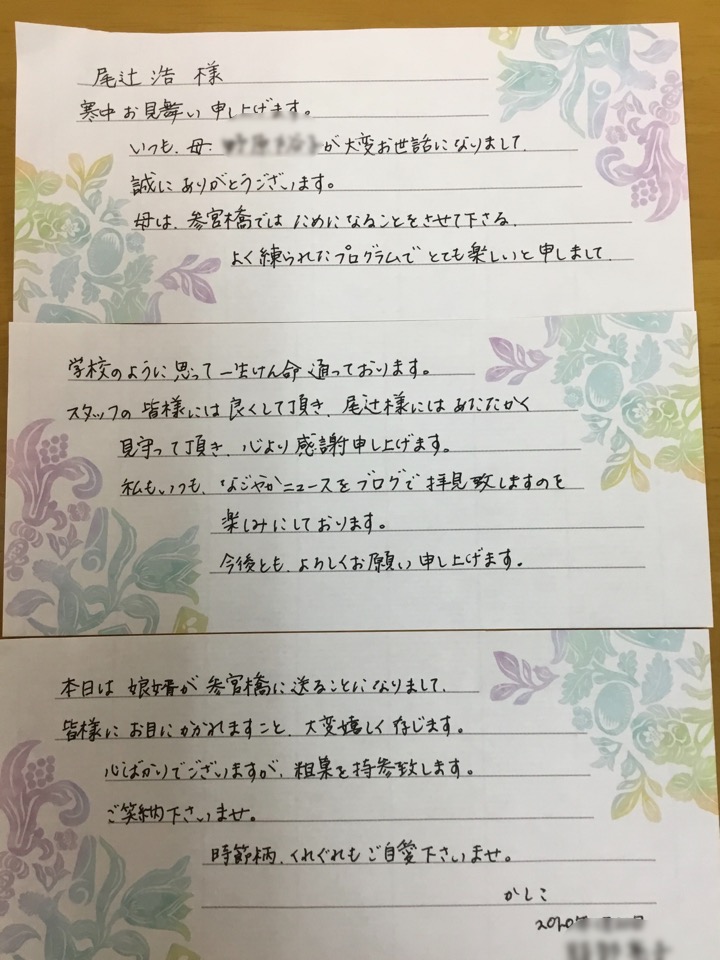 尾辻 浩 様
寒中お見舞い申し上げます。
いつも、母 が大変お世話になりまして、
誠にありがとうございます。
母は、参宮橋では ためになることをさせて下さる、
よく練られたプログラムで とても楽しいと申しまして、
学校のように思って 一生けん命 通っております。
スタッフの皆様には良くして頂き、尾辻様には あたたかく
見守って頂き、心より感謝申し上げます。
私もいつも、なごやかニュースをブログで拝見致しますのを
楽しみにしております。
今後とも、よろしくお願い申し上げます。
本日は 娘婿が 参宮橋に送ることになりまして、
皆様に お目にかかれますこと、大変嬉しく存じます。
心ばかりでございますが、粗菓を持参致します。
ご笑納下さいませ。
時節柄、くれぐれもご自愛下さいませ。
かしこ
2020年